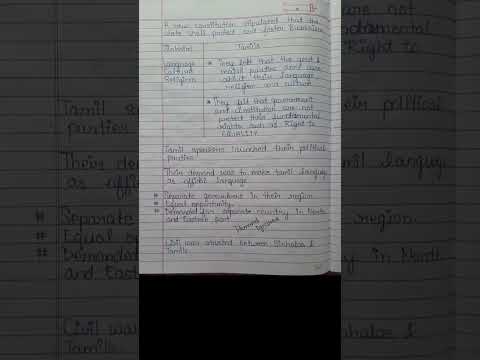 A new constitution stipulated that the
state shall protect and foster Buddhism
Sinhalas Tamils
Language
Culture
Religion
* They felt that the govt &
major parties dont care
about their language
religion and culture
* They felt that government
and constitution are not
protect their fundamental
rights such as Right to
EQUALITY
Tamil speakers launched their political
parties
Their demand was to make tamil language
as official language
# Separate government in their region
# Equal opportunity
# Demanded for separate country in North
and Eastern part
Demand ignored
Civil war started between Sinhalas &
Tamils